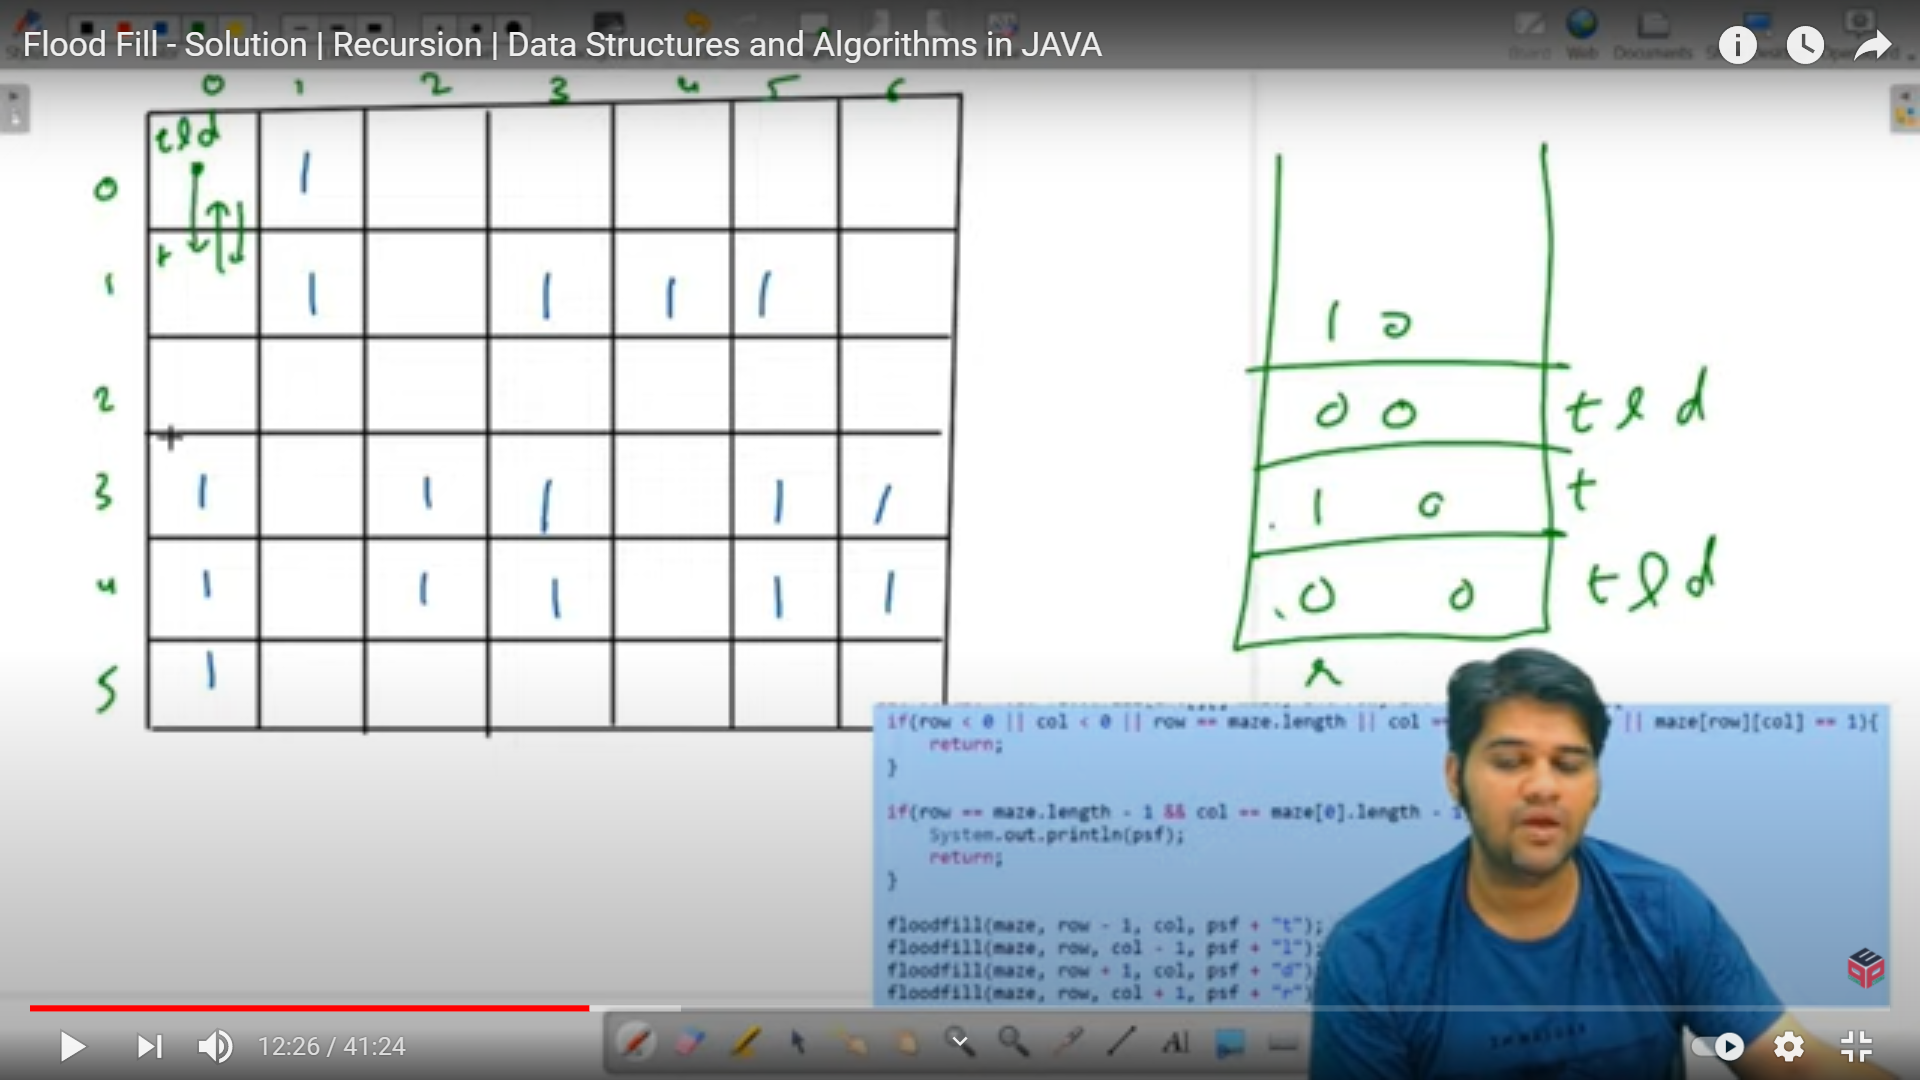 Flood Fill - Solution | Recursion | Data Structures and Algorithms in JAVA
Board Web Documents
0 1 2 3 4 5 6
t l d
0 1
t
1 1 1 1 1
2
3 1 1 1 1 1
4 1 1 1 1 1
5 1
1 0
0 0 t l d
1 0 t
0 0 t l d
r
if(row < 0 || col < 0 || row == maze.length || col == || maze[row][col] == 1){
return;
}
if(row == maze.length - 1 && col == maze[0].length - 1
System.out.println(psf);
return;
}
floodfill(maze, row - 1, col, psf + "t");
floodfill(maze, row, col - 1, psf + "l");
floodfill(maze, row + 1, col, psf + "d")
floodfill(maze, row, col + 1, psf + "r")
12:26 / 41:24
A